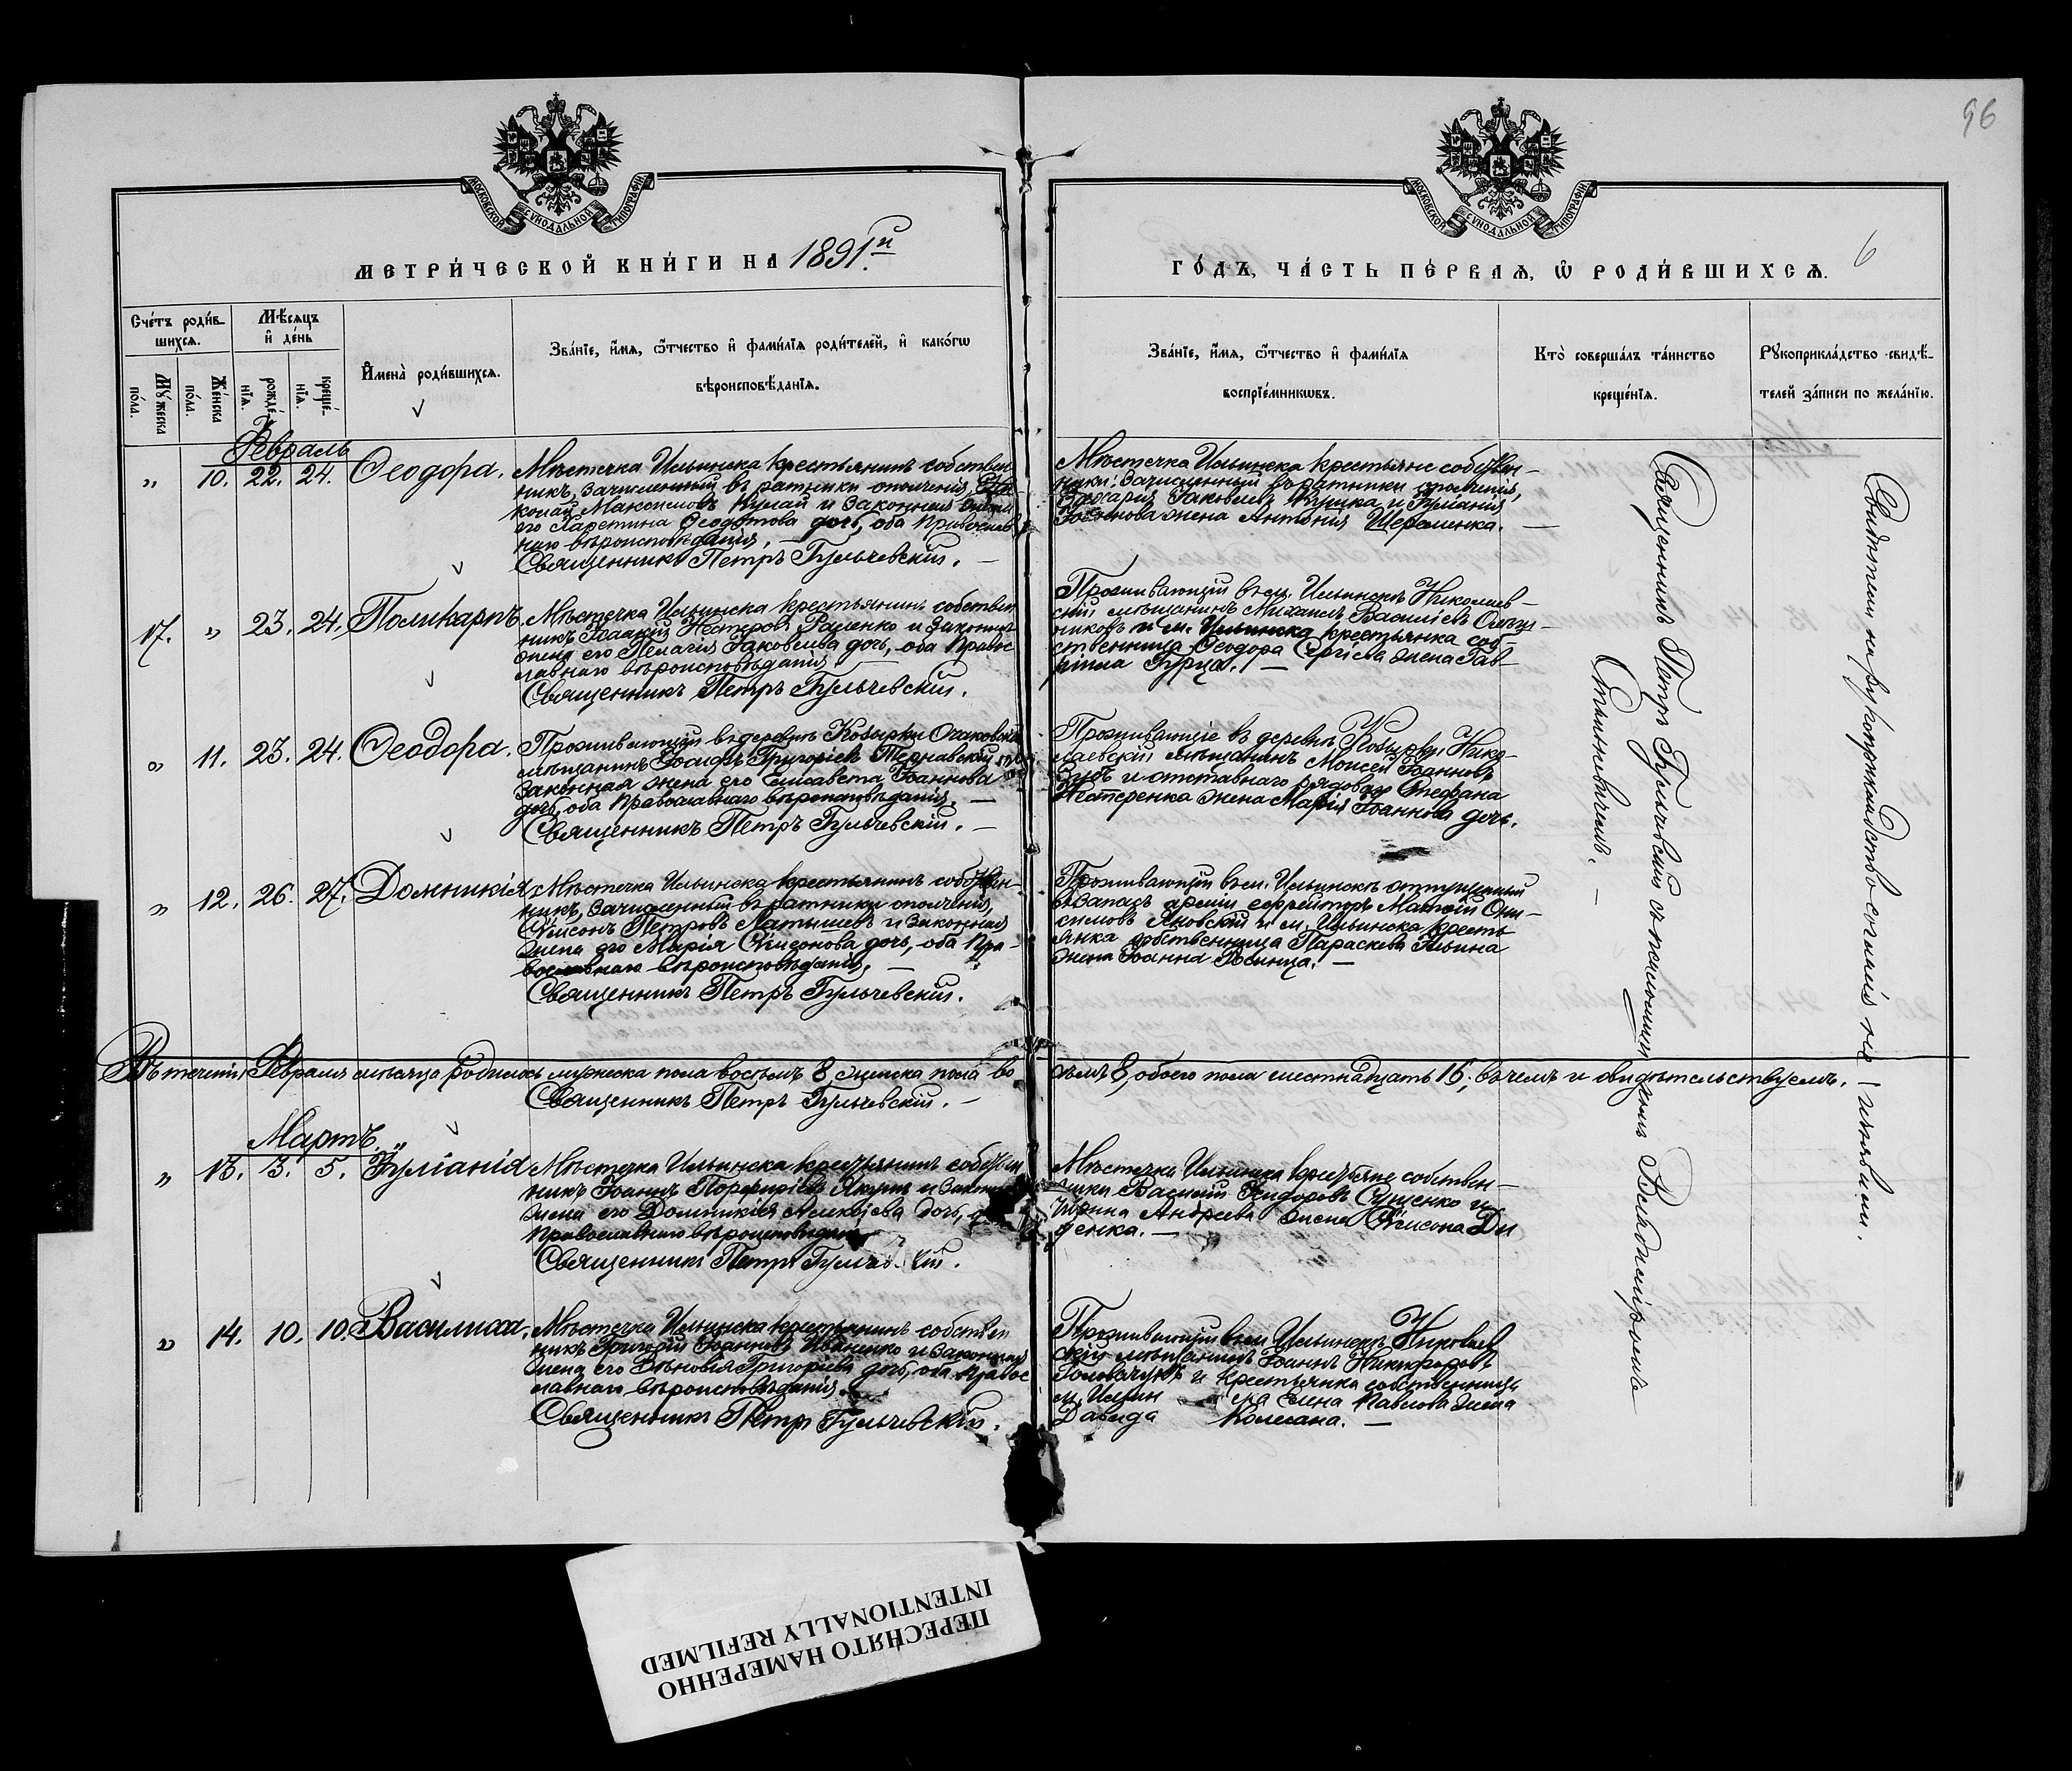 96
МОСКОВСКОЙ СѴНОДАЛЬНОЙ ТИПОГРАФІИ
МОСКОВСКОЙ СѴНОДАЛЬНОЙ ТИПОГРАФІИ
МЕТРИ́ЧЕСКОЙ КНИ́ГИ НА 1891й
ГО́ДЪ, ЧА́СТЬ ПЕ́РВАѦ, Ѡ РОДИ́ВШИХСѦ.
6
Сче́тъ роди́в-
шихсѧ.
Мѣ́сѧцъ
и҆ де́нь
Мꙋ́жеска
по́ла.
Же́нска
по́ла.
рожде́-
нїѧ.
креще́-
нїѧ.
И҆мена̀ роди́вшихсѧ.
Зва́нїе, и҆́мѧ, ѻ҆́тчество и҆ фами́лїѧ роди́телей, и҆ како́гѡ
вѣроисповѣ́данїѧ.
Зва́нїе, и҆́мѧ, ѻ҆́тчество и҆ фами́лїѧ
воспрїе́мникѡвъ.
Кто̀ соверша́лъ та́инство
креще́нїѧ.
Рꙋкоприкла́дство свидѣ́-
телей за́писи по жела́нїю.
Февраль
" 10. 22. 24. Ѳеодора.
Мѣстечка Ильинска крестьянинъ собствен
никъ, зачисленный въ ратники ополченія,
колай Максимовъ Кулай и законная жена
его Харетина Ѳеодотова дочь, оба Православ
наго вѣроисповѣданія. —
Священникъ Петръ Бульчевскій. —
Мѣстечка Ильинска крестьяне собствен-
ники: зачисленный въ ратники ополченія,
Захарія Іаковлевъ и Іуліанія
жена Антонія Шеременка. —
17. " 23. 24. Поликарпъ.
Мѣстечка Ильинска крестьянинъ собствен
никъ Нестеровъ и законная
жена его Пелагія Іаковлева дочь, оба Правос
лавнаго вѣроисповѣданія —
Священникъ Петръ Бульчевскій.
Проживающій въ м. Ильинскѣ Николаев-
скій мѣщанинъ Михаилъ Васильевъ
никовъ и м. Ильинска крестьянка соб-
ственница Ѳеодора Сергіева жена Гав-
ріила Гурца. —
" 11. 23. 24. Ѳеодора.
Проживающій въ деревнѣ Козырки Очаковскій
мѣщанинъ Іосифъ Григоріевъ Тернавскій и
законная жена его Елисавета Іоаннова
дочь, оба Православнаго вѣроисповѣданія. —
Священникъ Петръ Бульчевскій. —
Проживающіе въ деревнѣ Козыркѣ: Нико-
лаевскій мѣщанинъ Моисей Іоанновъ
Зубъ и отставнаго рядового Стефана
Нестеренка жена Марія Іоаннова дочь.
" 12. 26. 27. Домникія
Мѣстечка Ильинска крестьянинъ собствен-
никъ, зачисленный въ ратники ополченія,
Симеонъ Петровъ Латышевъ и законная
жена его Марія Симеонова дочь, оба Пра-
вославнаго вѣроисповѣданія, —
Священникъ Петръ Бульчевскій.
Проживающій въ м. Ильинскѣ отпущенный
въ запасъ арміи ефрейторъ Матѳій Они-
симовъ Яновскій и м. Ильинска кресть
янка собственница Параскева Ильина
жена Іоанна —
Въ теченіи Февраля мѣсяца родилось мужеска пола восемь 8 женска пола во
семь 8, обоего пола шестнадцать 16; въ чемъ и свидѣтельствуемъ.
Священникъ Петръ Бульчевскій. —
Мартъ
" 13. 3. 5. Іуліанія
Мѣстечка Ильинска крестьянинъ собствен
никъ Іоаннъ Порфиріевъ Якушъ и законная
жена его Домникія Алексіева дочь,
Православнаго вѣроисповѣданія
Священникъ Петръ Бульчевскій.
Мѣстечка Ильинска крестьяне собствен-
ники Василій Сидоровъ Сущенко и
Ирина Андреева жена Симеона Ди
денка. —
" 14. 10. 10. Василисса.
Мѣстечка Ильинска крестьянинъ собствен
никъ Григорій Іоанновъ Иваненко и законная
жена его Зиновія Григоріева дочь, оба Правос
лавнаго вѣроисповѣданія.
Священникъ Петръ Бульчевскій.
Проживающій въ м. Ильинскѣ Николаев
скій мѣщанинъ Іоаннъ Никифоровъ
Головачукъ и крестьянка собственница
м. Ильин ска Елена Павлова жена
Давида —
Священникъ Петръ Бульчевскій съ псаломщикомъ Владиміромъ
Станиневичемъ. —
Свидѣтели на рукоприкладство согласія не изъявили.
ПЕРЕСНЯТО НАМЕРЕННО
INTENTIONALLY REFILMED